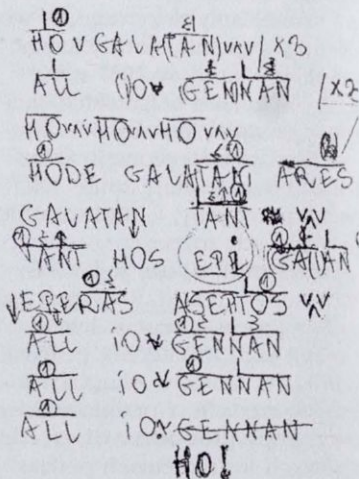 HOV GALA(TAN) VAV / X3
ALL IO GENNAN / X2
HO VAV HO VAV HO VAV
HODE GALATANT ARES
GALATAN TANT
TANT HOS EPI GALATAN
EPERAS ASEPTOS
ALL IO GENNAN
ALL IO GENNAN
ALL IO GENNAN
HO!